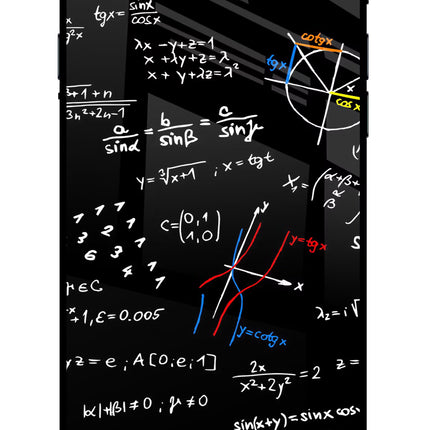 tgx = sinx/cosx
x/y²x
λx - y + z = 1
x + λy + z = λ
x + y + λz = λ²
cotgx
tgx
x
cosx
3+1+n
3n²+2n-1
a/sinα = b/sinβ = c/sinγ
y = ³√x+1 ; x = tgt
X₁ = (α+β+
β
1 1 1
3 2 1
6 3 1
4 1
1
C = (0,1
1,0)
y
x
y=tgx
y=cotgx
∈C
+1, ε = 0.005
λ₂ = i√
z = e ; A[0;e;1]
2x/x²+2y² = 2
z =
|α|+|β| ≠ 0 ; γ ≠ 0
sin(x+y) = sinx cos